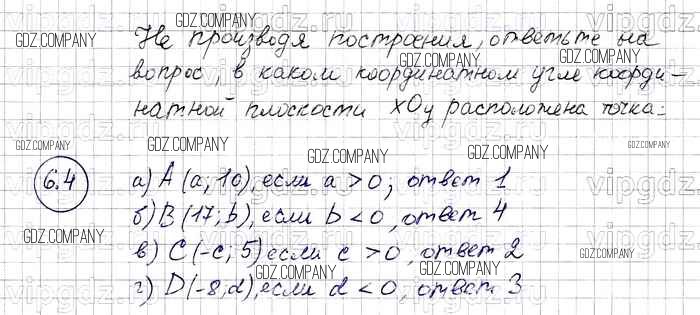 Не производя построения, ответьте на
вопрос, в каком координатном угле коорди-
натной плоскости xOy расположена точка:
6.4
а) A (a; 10), если a > 0, ответ 1
б) B (17; b), если b < 0, ответ 4
в) C (-c; 5) если c > 0, ответ 2
г) D (-8; d), если d < 0, ответ 3
GDZ.COMPANY
GDZ.COMPANY
GDZ.COMPANY
GDZ.COMPANY
GDZ.COMPANY
GDZ.COMPANY
GDZ.COMPANY
GDZ.COMPANY
GDZ.COMPANY
GDZ.COMPANY
GDZ.COMPANY
GDZ.COMPANY
vipgdz.ru
vipgdz.ru
vipgdz.ru